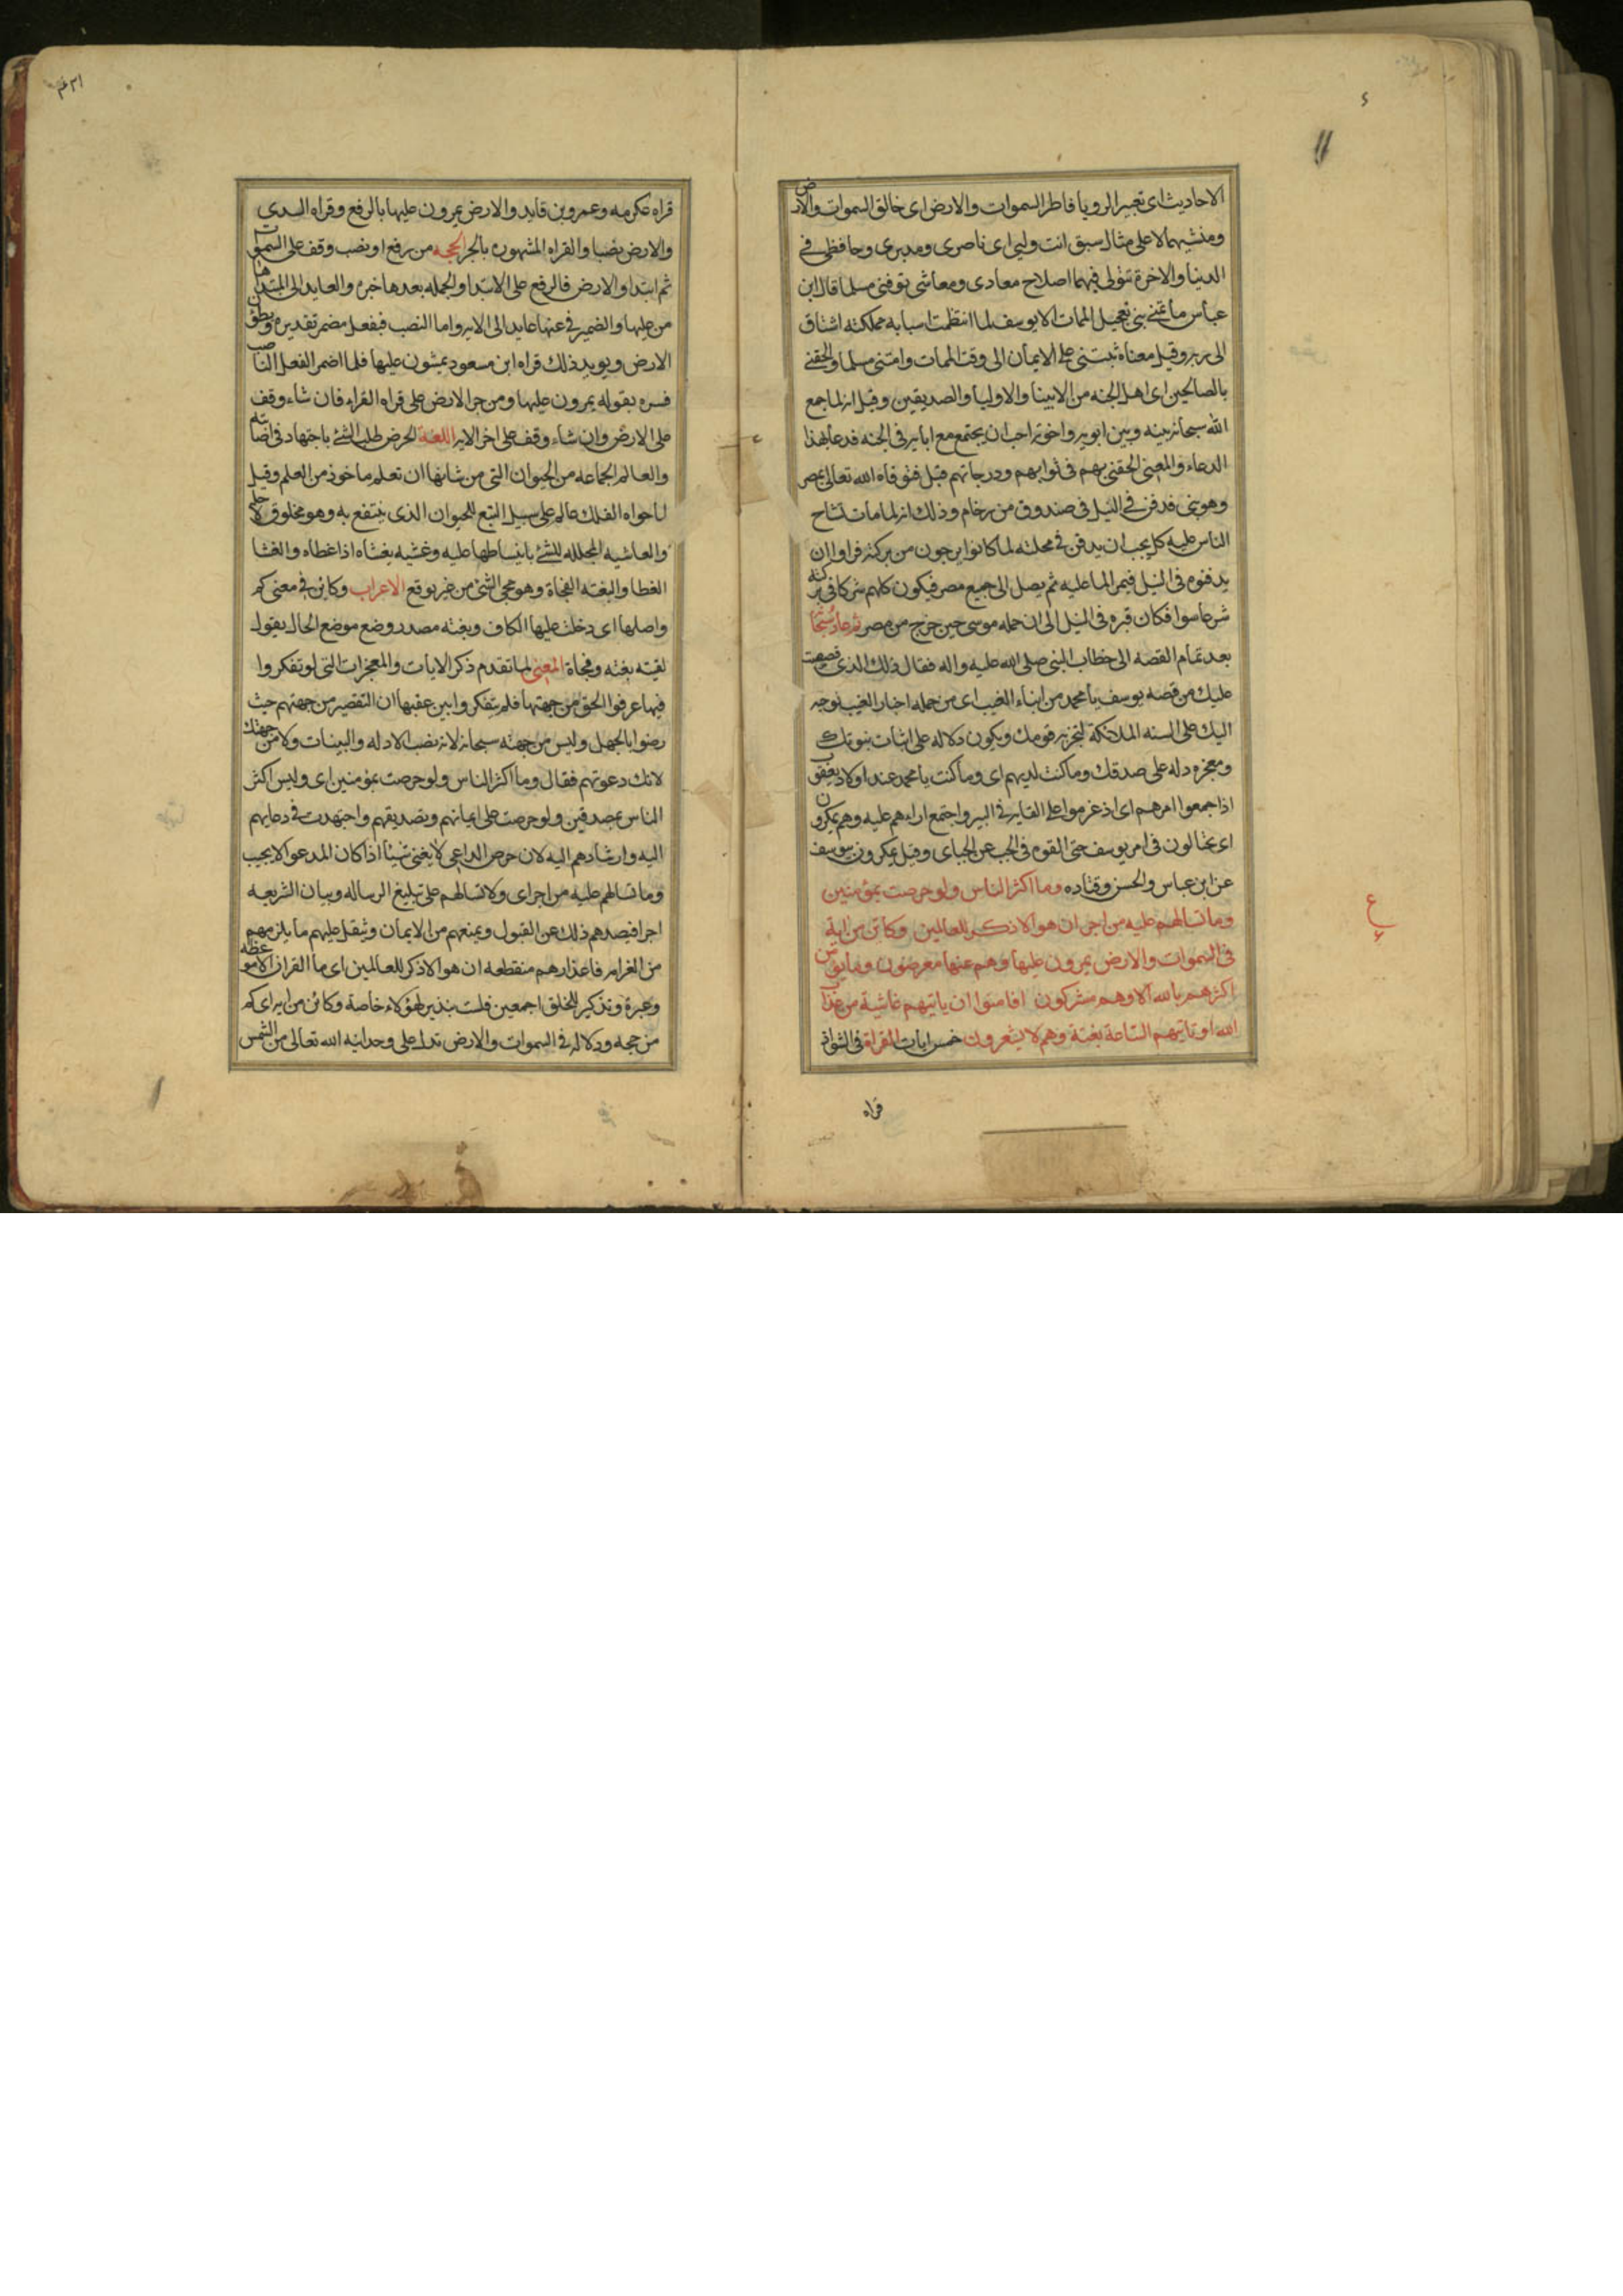 الاحاديث اى تعبير الرويا فاطر السموات والارض اى خالق السموات والارض
ومنشيهما لا على مثال سبق انت وليى اى ناصرى ومدبرى وحافظى فى
الدنيا والاخرة تتولى فيهما اصلاح معادى ومعاشى توفنى مسلما قال ابن
عباس ما تمنى نبى تعجيل الممات الا يوسف لما انتظمت اسبابه مملكته اشتاق
الى ربه وقيل معناه ثبتنى على الايمان الى وقت الممات وامتنى مسلما والحقنى
بالصالحين اى اهل الجنه من الانبيا والاوليا والصديقين وقيل انه لما جمع
الله سبحانه بينه وبين ابويه واخوته احب ان يجتمع مع ابايه فى الجنه فدعا بهذا
الدعاء والمعنى الحقنى بهم فى ثوابهم ودرجاتهم قيل فتوفاه الله تعالى بمصر
وهو نبى فدفن فى النيل فى صندوق من رخام وذلك انه لما مات تشاح
الناس عليه كل يحب ان يدفن فى محلته لما كانوا يرجون من بركته فراوا ان
يدفنوه فى النيل فيمر الما عليه ثم يصل الى جميع مصر فيكون كلهم شركا فى بركته
شرعا سوا فكان قبره فى النيل الى ان حمله موسى حين خرج من مصر ثم عاد سبحانه
بعد تمام القصه الى خطاب النبى صلى الله عليه واله فقال ذلك الذى قصصت
عليك من قصه يوسف يا محمد من انباء الغيب اى من جمله اخبار الغيب نوحيه
اليك على السنه الملائكة لتخبر به قومك ويكون دلاله على اثبات نبوتك
ومعجزه داله على صدقك وما كنت لديهم اى وما كنت يا محمد عند اولاد يعقوب
اذ اجمعوا امرهم اى اذ عزموا على القايه فى البير واجتمع اراءهم عليه وهم يمكرون
اى يحتالون فى امر يوسف حتى القوه فى الجب عن الجباى وقيل يمكرون بيوسف
عن ابن عباس والحسن وقتاده وما اكثر الناس ولو حرصت بمؤمنين
وما تسالهم عليه من اجر ان هو الا ذكر للعالمين وكاين من اية
فى السموات والارض يمرون عليها وهم عنها معرضون وما يومن
اكثرهم بالله الا وهم مشركون افامنوا ان ياتيهم غاشية من عذاب
الله او تاتيهم الساعة بغتة وهم لا يشعرون خمس ايات القراة فى الشواذ
قراه
قراه عكرمه وعمرو بن قايد والارض يمرون عليها بالرفع وقراه السدى
والارض نصبا والقراه المشهوره بالجر الحجه من رفع او نصب وقف على السموات
ثم ابتدا والارض فالرفع على الابتدا والجمله بعدها خبره والعايد الى المبتدا ها
من عليها والضمير فى عنها عايد الى الايه واما النصب فبفعل مضمر تقديره ويطون
الارض ويويد ذلك قراه ابن مسعود يمشون عليها فلما اضمر الفعل الناصب
فسره بقوله يمرون عليها ومن جر الارض على قراه القراء فان شاء وقف
على الارض وان شاء وقف على اخر الايه اللغة الحرص طلب الشئ باجتهاد فى اصابته
والعالم الجماعه من الحيوان التى من شانها ان تعلم ماخوذ من العلم وقيل
لما حواه الفلك عالم على سبيل التبع للحيوان الذى ينتفع به وهو مخلوق لاجله
والغاشيه المجلله للشئ بانبساطها عليه وغشيه يغشاه اذا غطاه والغشا
الغطا والبغته الفجاة وهو مجى الشئ من غير توقع الاعراب وكاين فى معنى كم
واصلها اى دخلت عليها الكاف وبغته مصدر وضع موضع الحال يقول
لقيته بغته وفجاة المعنى لما تقدم ذكر الايات والمعجزات التى لو تفكروا
فيها عرفوا الحق من جهتها فلم يتفكروا بين عقبها ان التقصير من جهتهم حيث
رضوا بالجهل وليس من جهته سبحانه لانه نصب الادله والبينات ولا من جهتك
لانك دعوتهم فقال وما اكثر الناس ولو حرصت بمؤمنين اى وليس اكثر
الناس بمصدقين ولو حرصت على ايمانهم وتصديقهم واجتهدت فى دعايهم
اليه وارشادهم اليه لان حرص الداعى لا يغنى شيئا اذا كان المدعو لا يجيب
وما تسالهم عليه من اجر اى ولا تسالهم على تبليغ الرساله وبيان الشريعه
اجرا فيصدهم ذلك عن القبول ويمنعهم من الايمان ويثقل عليهم ما يلزمهم
من الغرامه فاعذارهم منقطعه ان هو الا ذكر للعالمين اى ما القران الا موعظه
وعبرة وتذكير للخلق اجمعين فلست بنذير لهؤلاء خاصة وكائن من ايه اى كم
من حجه ودلاله فى السموات والارض تدل على وحدانيه الله تعالى من الشمس